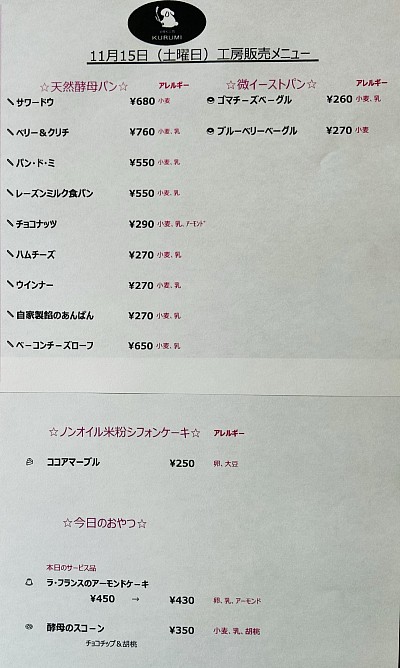 KURUMI
11月15日（土曜日）工房販売メニュー
☆天然酵母パン☆ アレルギー
サワードウ ¥680 小麦
ベリー＆クリチ ¥760 小麦、乳
パン・ド・ミ ¥550 小麦、乳
レーズンミルク食パン ¥550 小麦、乳
チョコナッツ ¥290 小麦、乳、アーモンド
ハムチーズ ¥270 小麦、乳
ウインナー ¥270 小麦、乳
自家製餡のあんぱん ¥270 小麦、乳
ベーコンチーズローフ ¥650 小麦、乳
☆微イーストパン☆ アレルギー
ゴマチーズベーグル ¥260 小麦、乳
ブルーベリーベーグル ¥270 小麦
☆ノンオイル米粉シフォンケーキ☆ アレルギー
ココアマーブル ¥250 卵、大豆
☆今日のおやつ☆
本日のサービス品
ラ・フランスのアーモンドケーキ
¥450 → ¥430 卵、乳、アーモンド
酵母のスコーン ¥350 小麦、乳、胡桃
チョコチップ＆胡桃